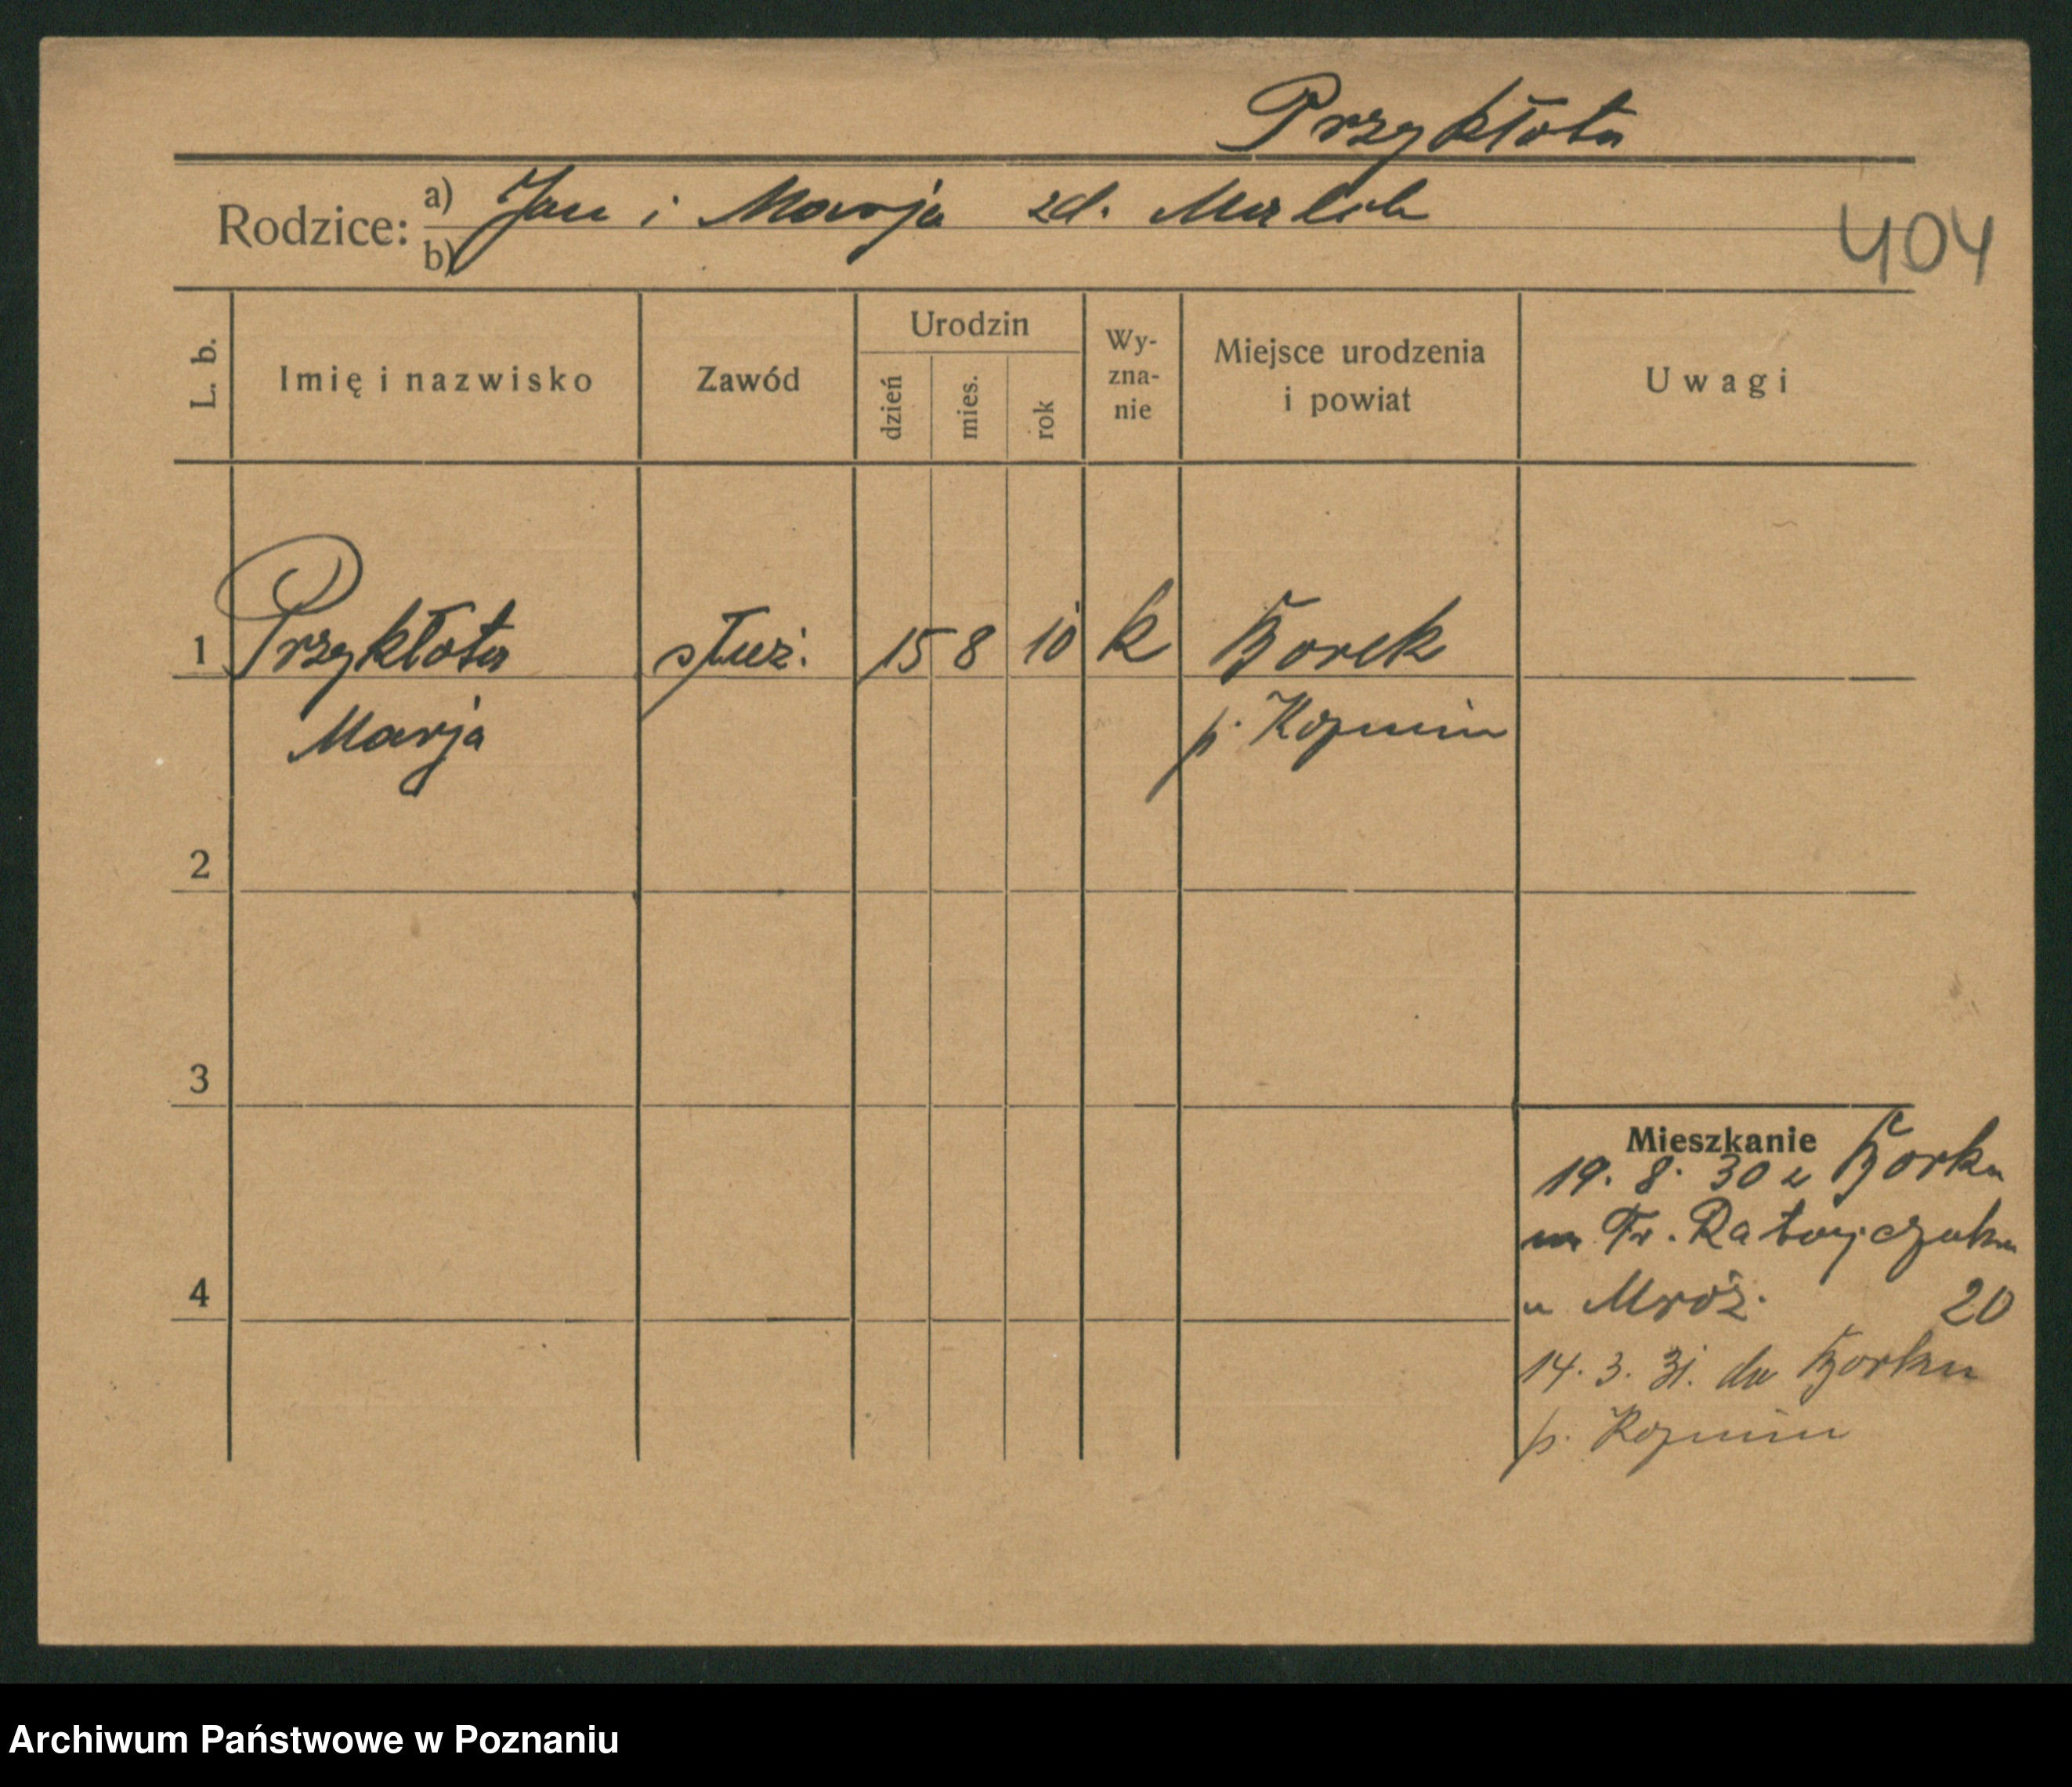 Przykłota
Rodzice: a) Jan i Marja zd.
b)
404
L. b.
Imię i nazwisko
Zawód
Urodzin
dzień
mies.
rok
Wy-
zna-
nie
Miejsce urodzenia
i powiat
Uwagi
1 Przykłota służ. 15 8 10 k Borek
Marja p. Koźmin
2
3
4
Mieszkanie
19. 8. 30 z Borku
Fr. Ratajczaka
u Mróz. 20
14. 3. 31. do Borku
p. Koźmin
Archiwum Państwowe w Poznaniu